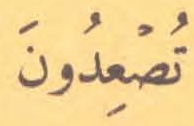 تُصْعِدُونَ